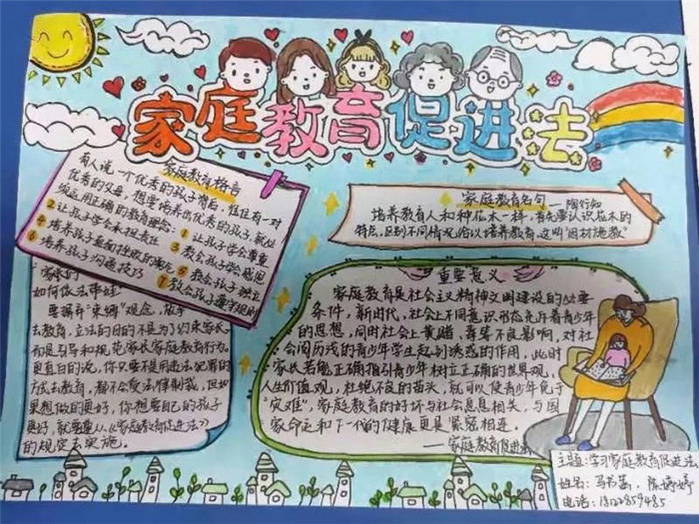 家庭教育促进法
家庭教育格言
有人说一个优秀的孩子背后,往往有一对
优秀的父母,想要培养出优秀的孩子,就必
须运用正确的教育理念:1 让孩子学会尊重
2 让孩子学会承担责任 3 教会孩子学会感恩
4 培养孩子直面挫败的 5 教会孩子独立
6 培养孩子沟通技巧 7 教会孩子遵守规则
家庭教育名句——陶行知
培养教育人和种花木一样,首先要认识花木的
特点,区别不同情况给以培养教育,这叫“因材施教”
家长们
如何依法带娃
要摒弃“束缚”观念,依法
去教育,立法的目的不是为了约束家长,
而是引导和规范家长家庭教育行为。
更直白的说,你只要不是用违法犯罪的
方式去教育,都不会受法律制裁,但如
果想做的更好,你想要自己的孩子
更好,就要遵从《家庭教育促进法》
的规定去实施。
重要意义
家庭教育是社会主义精神文明建设的必要
条件,新时代,社会上不同意识形态充斥着青少年
的思想,同时社会上黄赌、毒等不良影响,对社
会阅历浅的青少年学生起到诱惑的作用,此时
家长若能正确指引青少年树立正确的世界观,
人生价值观,杜绝不良的苗头,就可以使青少年免于
“灾难”,家庭教育的好坏与社会息息相关,与国
家命运和下一代的健康更是紧密相连。
——家庭教育促进法
主题:学习家庭教育促进法
姓名:马书 陈婷婷
电话: